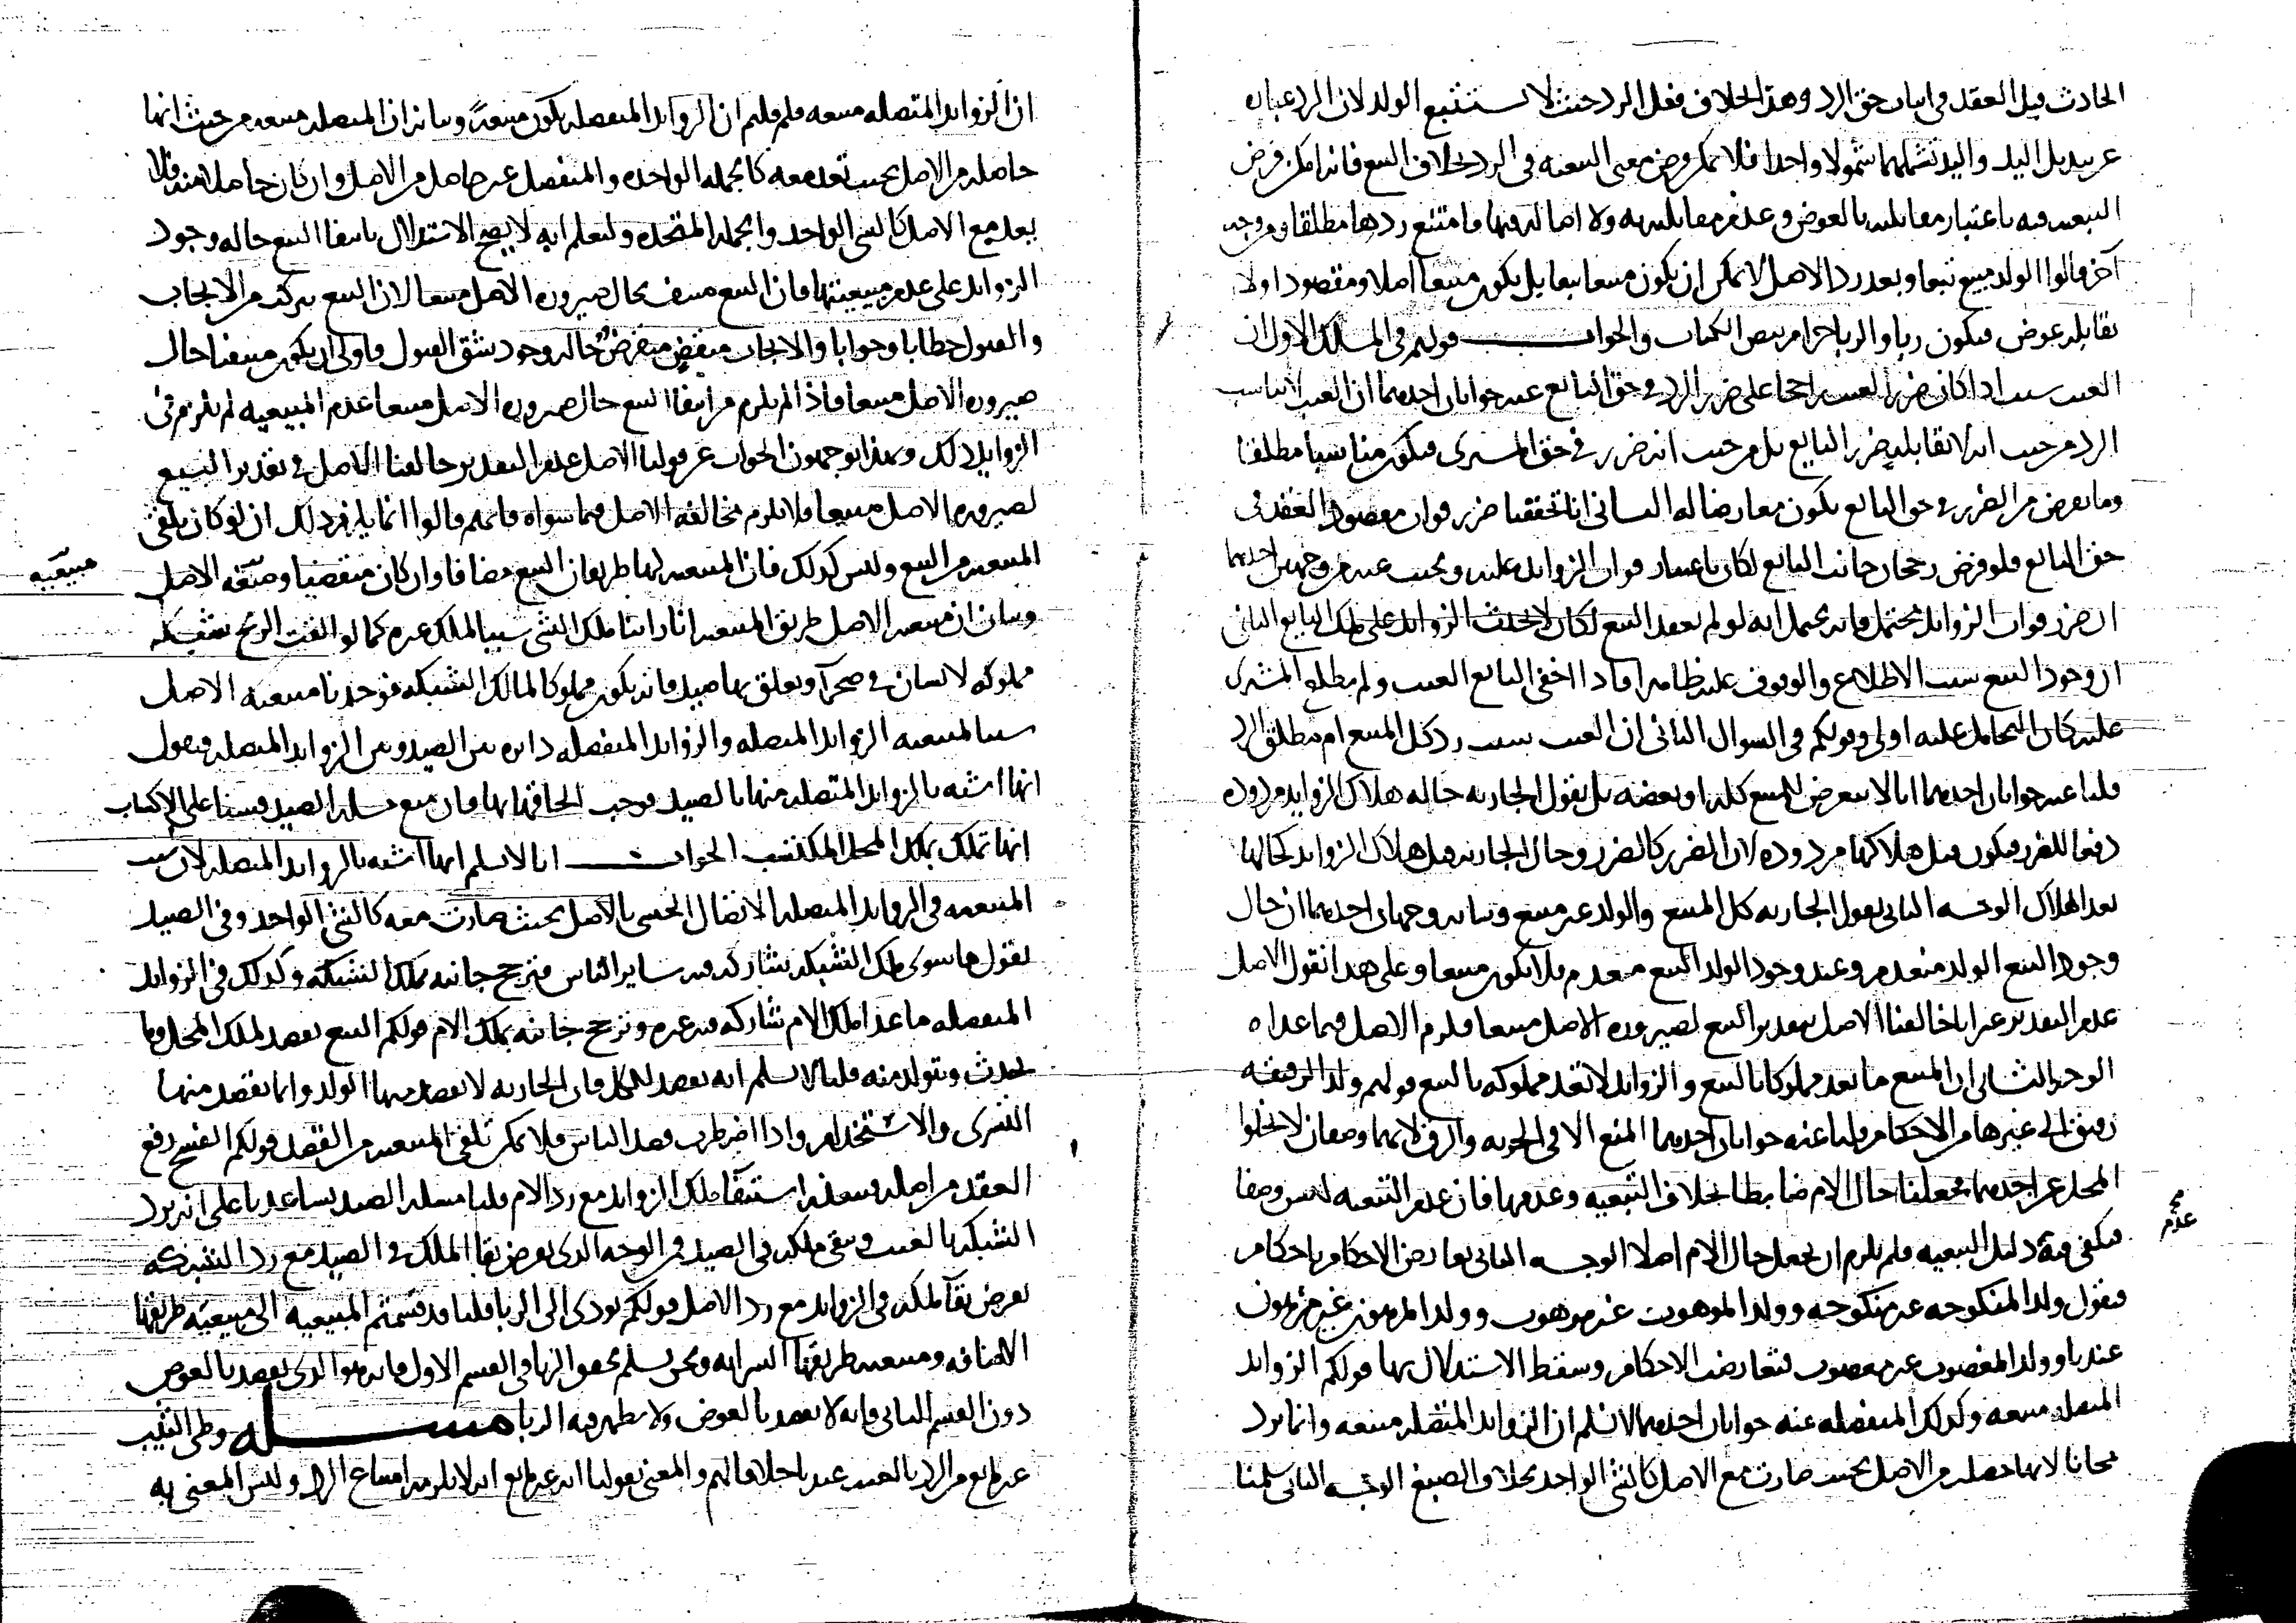 الحادث قبل العقد في اثبات حق الرد وهذا الخلاف فعل الرد حيث لا يستتبع الولد لان الرد عباره
عن تبديل اليد واليد تشملهما شمولا واحدا فلا يمكن فرض معنى التبعيه في الرد بخلاف البيع فانه امكن فرض
التبعيه فيه باعتبار مقابلته بالعوض وعدم مقابلته به ولا اصاله فيها فامتنع ردها مطلقا ومن وجه
آخر قالوا الولد مبيع تبعا وبعد رد الاصل لا يمكن ان يكون مبيعا تبعا بل يكون مبيعا اصلا ومقصودا ولا
يقابله عوض فيكون ربا والربا حرام بنص الكتاب والجواب قولهم في المسلك الاول ان
العيب سبب اذا كان ضرر العيب راجحا على ضرر الرد في حق البائع عنه جوابان احدهما ان العيب لا يناسب
الرد من حيث انه لا يقابله ضرر البايع بل من حيث انه ضرر في حق المشتري فيكون مناسبا مطلقا
وما يعرض من الضرر في حق البائع يكون معارضا له الثاني انا تحققنا ضرر فوات مقصود العقد في
حق البائع فلو فرض رجحان جانب البائع لكان باعتبار فوات الزوائد عليه ونجيب عنه من وجهين احدهما
ان ضرر فوات الزوائد محتمل فانه يحتمل انه لو لم يعقد البيع لكان لا يحدث الزوائد على ملك البايع الثاني
ان وجود البيع سبب الاطلاع والوقوف عليه ظاهرا فاذا اخفى البائع العيب ولم يطلع المشتري
عليه كان التحامل عليه اولى وقولكم في السوال الثاني ان العيب سبب رد كل المبيع ام مطلق الرد
قلنا عنه جوابان احدهما انا لا نتعرض للمبيع كله او بعضه بل نقول الجاريه حاله هلاك الزوايد مردوده
دفعا للضرر فيكون قبل هلاكها مردوده لان الضرر كالضرر وحال الجاريه قبل هلاك الزوائد كحالها
بعد الهلاك الوجه الثاني نقول الجاريه كل المبيع والولد غير مبيع وبيانه وجهان احدهما ان حال
وجود البيع الولد منعدم وعند وجود الولد البيع منعدم فلا يكون مبيعا وعلى هذا نقول الاصل
عدم التقدير غير انا خالفنا الاصل بتقدير البيع لصيروره الاصل مبيعا فلزم الاصل فيما عداه
الوجه الثاني ان المبيع ما يعد مملوكا بالبيع والزوائد لا تعد مملوكه بالبيع قولهم ولد الرقيقه
رقيق الى غيرها من الاحكام قلنا عنه جوابان احدهما المنع الا في الحريه والرق لانهما وصفان لا يخلوا
المحل عن احدهما فجعلنا حال الام ضابطا بخلاف التبعيه وعدمها فان عدم التبعيه ليس وصفا
فيكفي فيه دليل التبعيه فلم يلزم ان يجعل حال الام اصلا الوجه الثاني تعارض الاحكام باحكام
فنقول ولد المنكوحه غير منكوحه وولد الموهوب غير موهوب وولد المرهون غير مرهون
عندنا وولد المغصوب غير مغصوب فتعارضت الاحكام وسقط الاستدلال بها قولكم الزوائد
المتصله مبيعه وكذلك المنفصله عنه جوابان احدهما لا نسلم ان الزوائد المتصله مبيعه وانما يرد
مجانا لانها حصلت من الاصل بحيث صارت مع الاصل كالشي الواحد بخلاف الصبغ الوجه الثاني سلمنا
عدم
ان الزوائد المتصله مبيعه فلم قلتم ان الزوائد المنفصله يكون مبيعةً وبيانه ان المتصله مبيعه من حيث انها
حاصله من الاصل بحيث تعد معه كالجمله الواحده والمنفصل غير حاصل من الاصل وان كان حاصلا منه فلا
يعد مع الاصل كالشي الواحد والجمله المتحده ولتعلم انه لا يصح الاستدلال بانتفا البيع حاله وجود
الزوائد على عدم مبيعيتها فان البيع منتف بحال صيروره الاصل مبيعا لان البيع يتركب من الايجاب
والقبول خطابا وجوابا والايجاب منقض منقرض حاله وجود شق القبول فاولى ان يكون منتفيا حال
صيروره الاصل مبيعا فاذا لم يلزم من انتفا البيع حال صيروره الاصل مبيعا عدم المبيعيه لم يلزم في
الزوايد ذلك وبهذا توجهون الجواب عن قولنا الاصل عدم التقدير خالفنا الاصل في تقدير البيع
لصيروره الاصل مبيعا فلا يلزم مخالفه الاصل فيما سواه فانهم قالوا انما يلزم ذلك ان لو كان تلقى
المبيعيه من البيع وليس كذلك فان المبيعيه لها طريقان البيع مضافا وان كان منقضيا ومبيعيه الاصل
وبيان ان مبيعيه الاصل طريق المبيعيه انا راينا ملك الشي سببا لملك غيره كما لو القت الريح شبكه
مملوكه لانسان في صحرآ وتعلق بها صيد فانه يكون مملوكا لمالك الشبكه فوجدنا مبيعيه الاصل
سببا لمبيعيه الزوائد المتصله والزوائد المنفصله دايره بين الصيد وبين الزوائد المتصله فنقول
انها اشبه بالزوائد المتصله منها بالصيد فوجب الحاقها بها فان منع مسله الصيد قسنا على الاكساب
انها تملك بملك المحل المكتسب الجواب انا لا نسلم انها اشبه بالزوائد المتصله لان سبب
المبيعيه في الزوائد المتصله الاتصال الحسي بالاصل بحيث صارت معه كالشي الواحد وفي الصيد
نقول ما سوى ملك الشبكه يشاركه فيه ساير الناس فترجح جانبه بملك الشبكه وكذلك في الزوائد
المنفصله ما عدا ملك الام شاركه فيه غيره وترجح جانبه بملك الام قولكم البيع يقصد لملك المحل وما
يحدث ويتولد منه قلنا لا نسلم انه يقصد للكل فان الجاريه لا يقصد منها الولد وانما يقصد منها
التسري والاستخدام واذا اضطرب قصد الناس فلا يمكن تلقى المبيعيه من القصد قولكم الفسخ رفع
العقد من اصله فيبعد استبقآ ملك الزوايد مع رد الام قلنا مسله الصيد يساعدنا على انه يرد
الشبكه بالعيب ويبقى ملكه في الصيد فمن الوجه الذي يعرض بقا الملك في الصيد مع رد الشبكه
يعرض بقآ ملكه في الزوايد مع رد الاصل قولكم يودي الى الربا قلنا قد قسمتم المبيعيه الى مبيعيه طريقها
الاضافه ومبيعيه طريقها السرايه ونحن نسلم تحقق الربا في القسم الاول فانه هو الذي يقصد بالعوض
دون القسم الثاني فانه لا يقصد بالعوض ولا يظهر فيه الربا مسله وطى الثيب
غير مانع من الرد بالعيب عندنا خلافا لهم والمعني بقولنا انه غير مانع انه لا يلزمه امتناع الرد وليس المعني به
مبيعيه